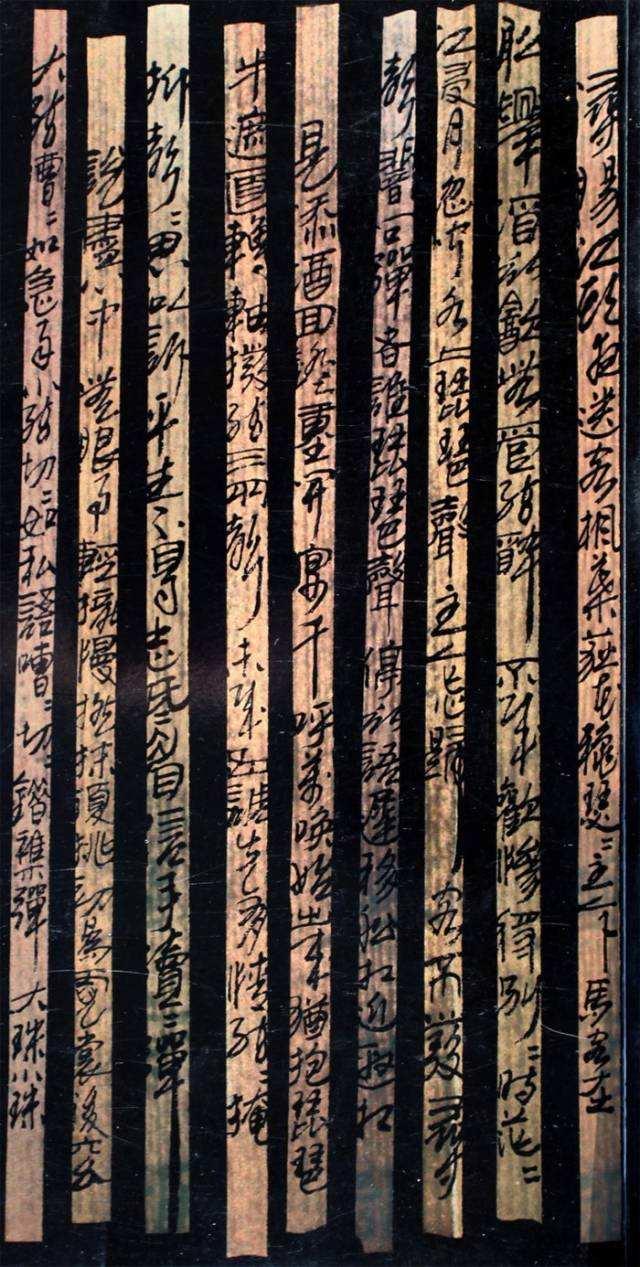 潯陽江頭夜送客楓葉荻花穐瑟〻主人下馬客在
船舉酒欲飲無管弦醉不成歡慘將別〻時茫〻
江浸月忽聞水上琵琶聲主人忘歸客不發尋
聲暗問彈者誰琵琶聲停欲語遲移船相近邀相
見添酒回燈重開宴千呼萬喚始出來猶抱琵琶
半遮面轉軸撥弦三兩聲未成曲調先有情弦〻掩
抑聲〻思似訴平生不得志低眉信手續〻彈
說盡心中無限事輕攏慢撚抹復挑初為霓裳後六幺
大弦嘈〻如急雨小弦切〻如私語嘈〻切〻錯雜彈大珠小珠